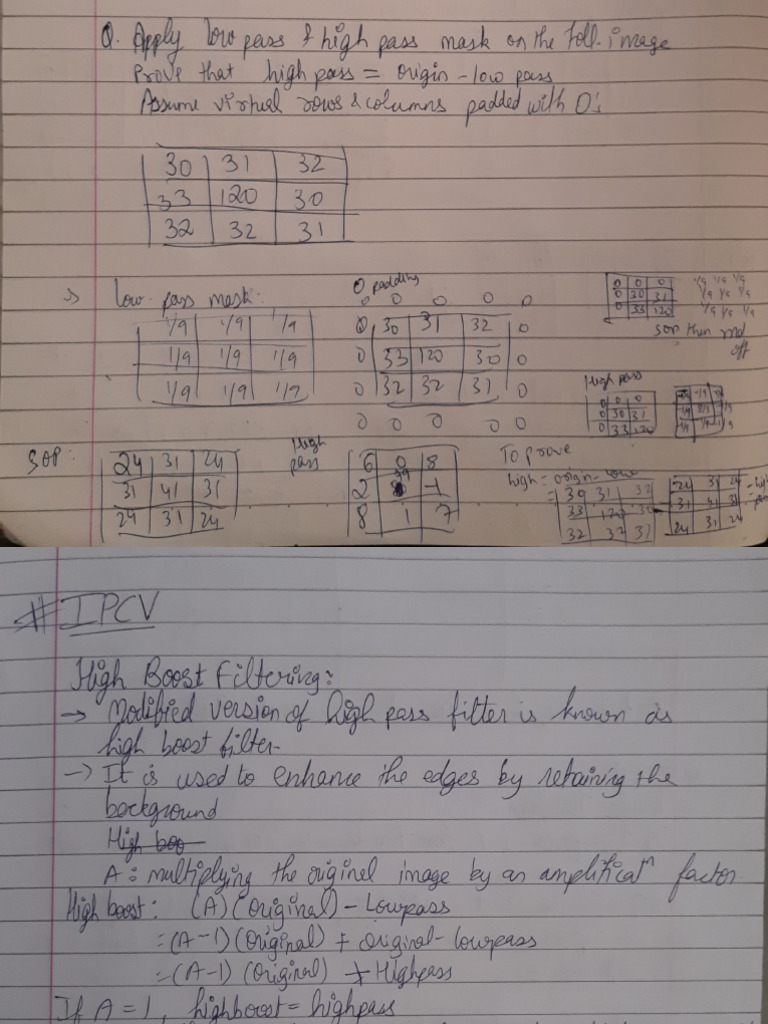 Q. Apply low pass & high pass mask on the foll. image
Prove that high pass = origin - low pass
Assume virtual rows & columns padded with 0's
30 31 32
33 120 30
32 32 31
low pass mask:
1/9 1/9 1/9
1/9 1/9 1/9
1/9 1/9 1/9
0 padding
0 0 0 0 0
0 30 31 32 0
0 33 120 30 0
0 32 32 31 0
0 0 0 0 0
0 0 0
0 30 31
0 33 120
1/9 1/9 1/9
1/9 1/9 1/9
1/9 1/9 1/9
SOP then rnd
off
High pass
0 0 0
0 30 31
0 33 120
SOP:
24 31 24
31 41 31
24 31 24
High
pass
6 0 8
2 79 -1
8 1 7
To prove
high = origin - low
= 30 31 32
33 120 30
32 32 31
-
24 31 24
31 41 31
24 31 24
# IPCV
High Boost Filtering:
→ Modified version of high pass filter is known as
high boost filter.
→ It is used to enhance the edges by retaining the
background
High boo
A: multiplying the original image by an amplificatn factor
High boost: (A)(Original) - Lowpass
= (A-1)(Original) + Original - lowpass
= (A-1) (Original) + Highpass
If A = 1, highboost = highpass